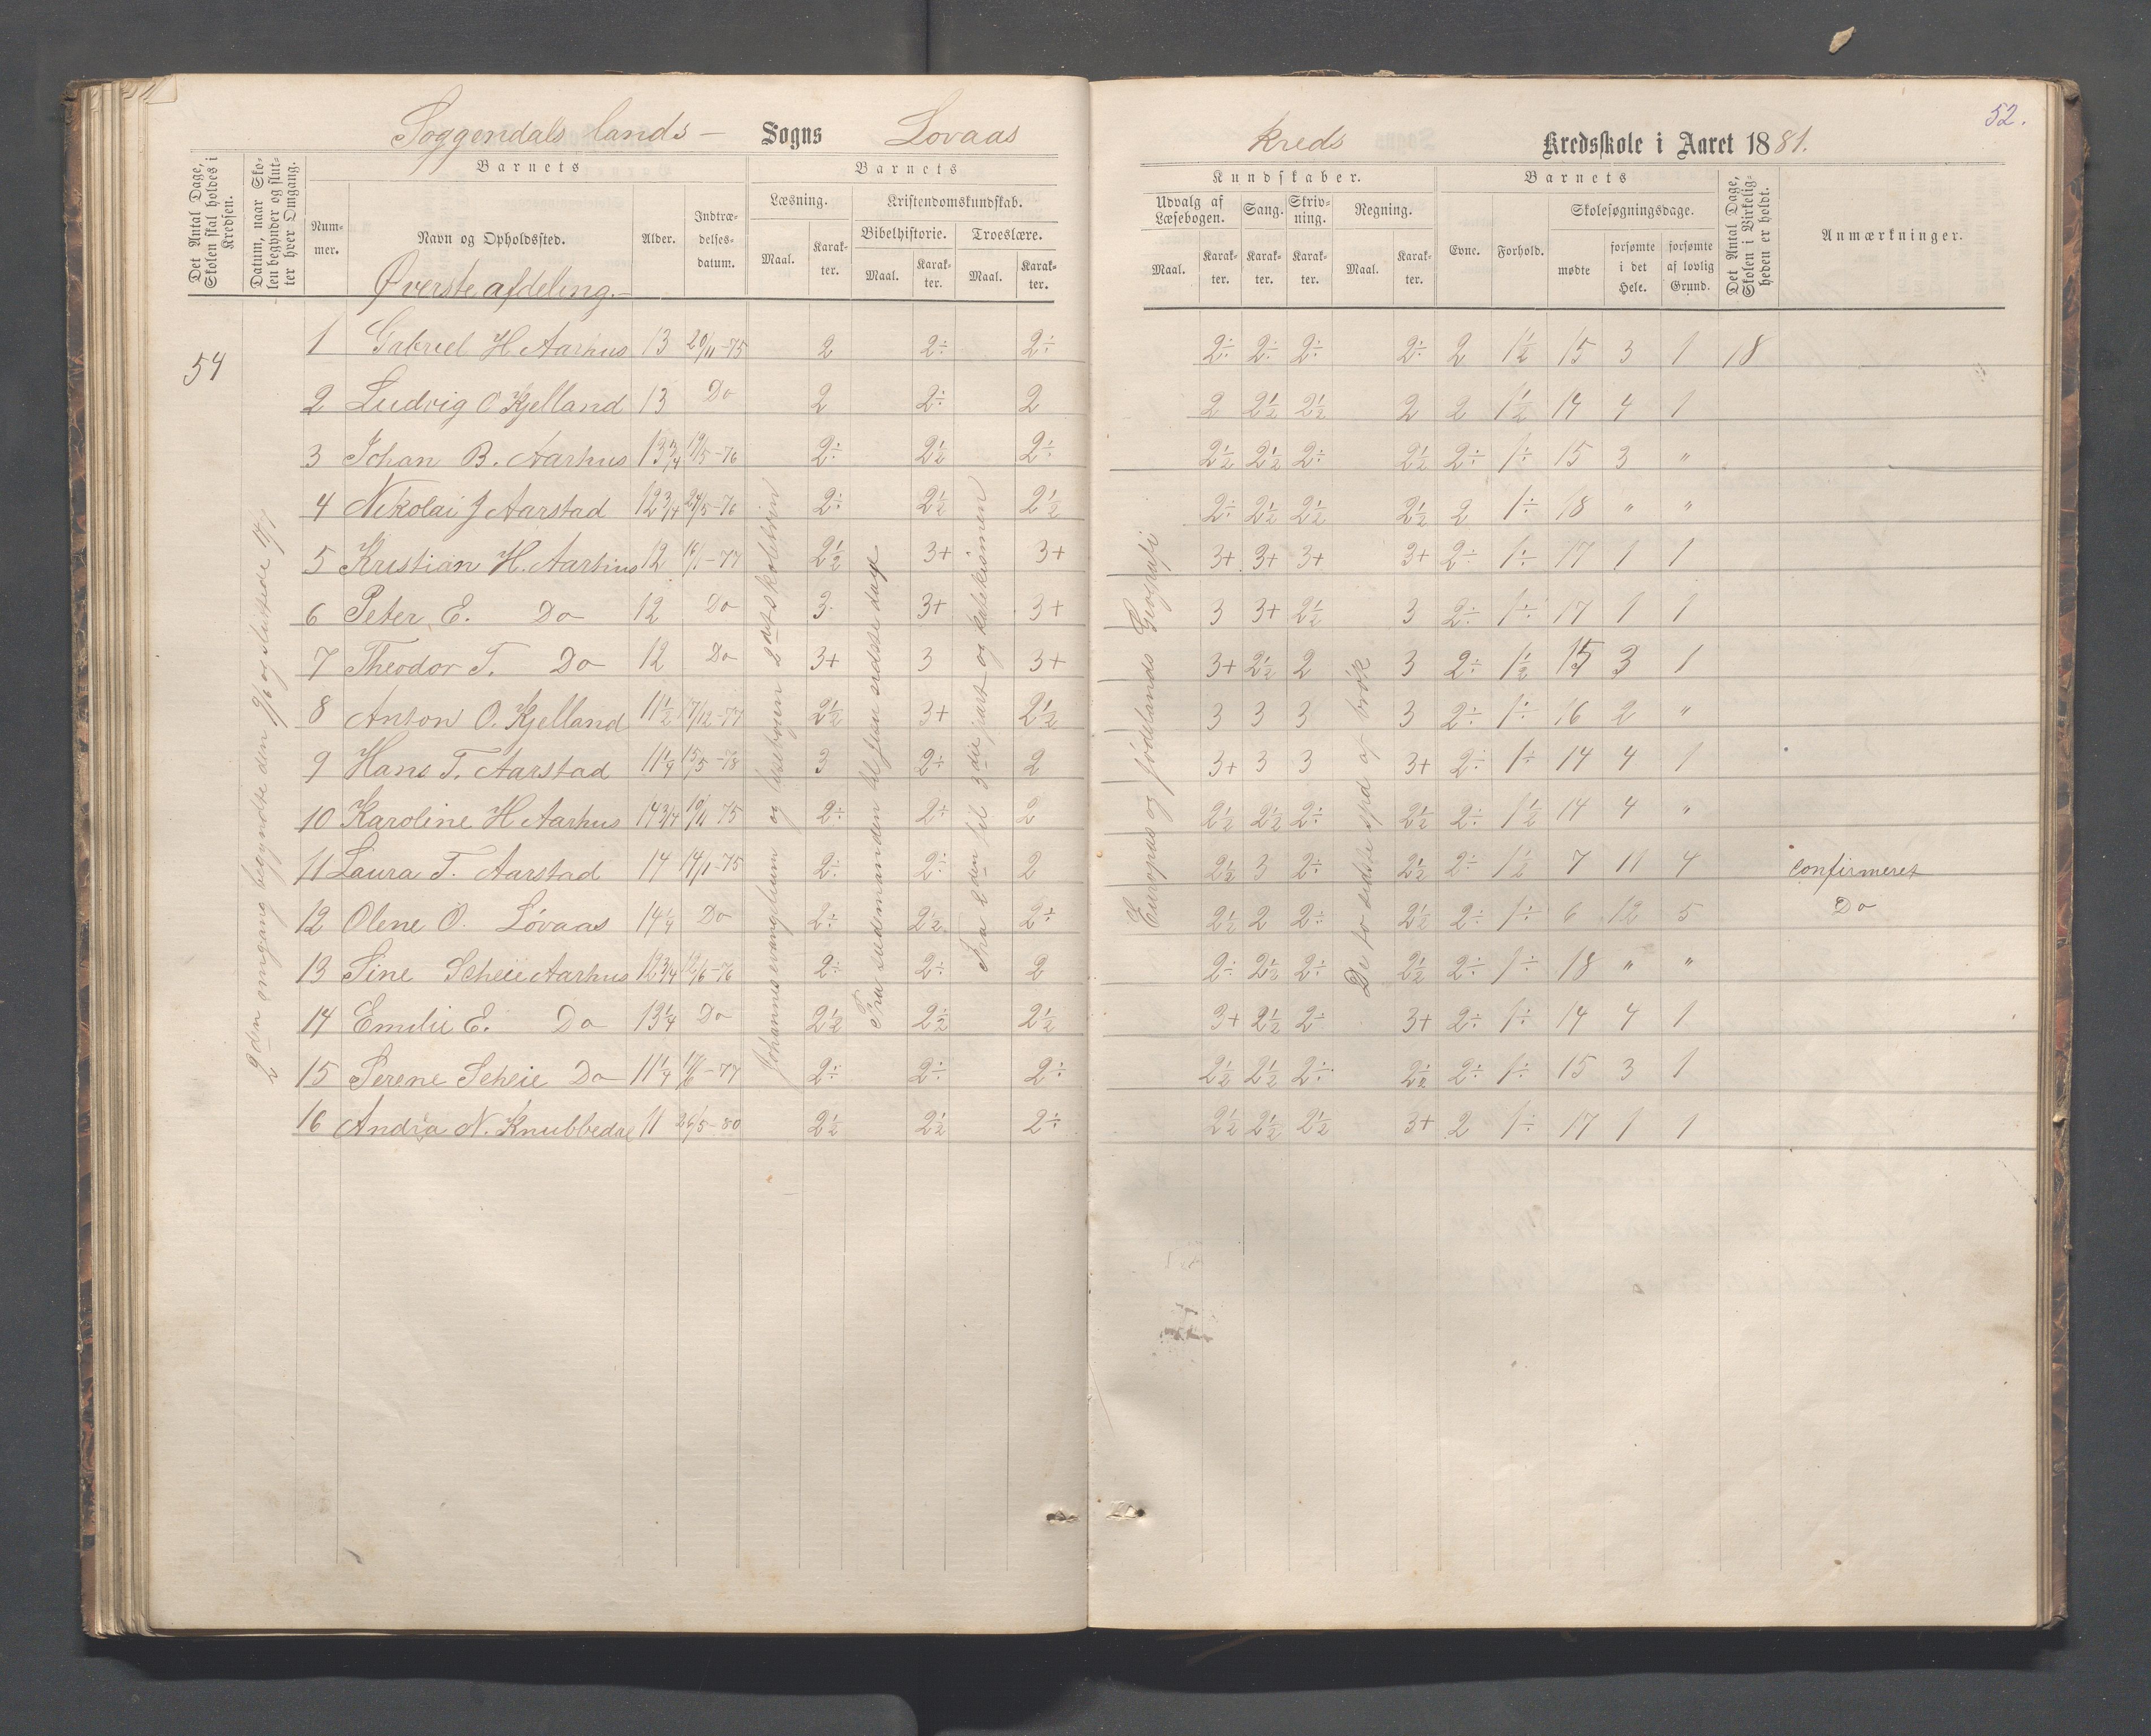 52.
Soggendals lands – Sogns Lovaas
kreds Kredsskole i Aaret 1881.
Det Antal Dage, Skolen skal holdes i Kredsen.
Datum, naar Skolen begynder og slutter hver Omgang.
Barnets
Nummer.
Navn og Opholdssted.
Alder.
Indtrædelsesdatum.
Barnets
Læsning.
Maal.
Karakter.
Kristendomskundskab.
Bibelhistorie.
Maal.
Karakter.
Troeslære.
Maal.
Karakter.
Kundskaber.
Udvalg af Læsebogen.
Maal.
Karakter.
Sang.
Karakter.
Skrivning.
Karakter.
Regning.
Maal.
Karakter.
Barnets
Evne.
Forhold.
Skolesøgningsdage.
mødte
forsømte i det Hele.
forsømte af lovlig Grund.
Det Antal Dage, Skolen i Virkeligheden er holdt.
Anmærkninger.
Øverste afdeling.
54
2den omgang begyndte den 9/6 og sluttede
1 Gabriel H. Aarhus 13 20/11-75 2 2÷ 2÷ 2÷ 2÷ 2÷ 2÷ 2 1½ 15 3 1 18
2 Ludvig O Kjelland 13 Do 2 2÷ 2 2 2½ 2½ 2 2 1½ 14 4 1
3 Johan B. Aarhus 13¾ 19/5-76 2÷ 2½ 2÷ 2½ 2½ 2÷ 2½ 2÷ 1÷ 15 3 "
4 Nikolai J Aarstad 12¾ 24/5-76 2÷ 2½ 2½ 2÷ 2½ 2½ 2½ 2 1÷ 18 " "
5 Kristian H. Aarhus 12 16/1-77 2½ 3+ 3+ 3+ 3+ 3+ 3+ 2÷ 1÷ 17 1 1
6 Peter E. Do 12 Do 3 3+ 3+ 3 3+ 2½ 3 2÷ 1÷ 17 1 1
7 Theodor T. Do 12 Do 3+ 3 3+ 3+ 2½ 2 3 2÷ 1½ 15 3 1
8 Anton O. Kjelland 11½ 17/12-77 2½ 3+ 2½ 3 3 3 3 2÷ 1÷ 16 2 "
9 Hans T. Aarstad 11¼ 15/5-78 3 2÷ 2 3+ 3 3 3+ 2÷ 1÷ 14 4 1
10 Karoline H Aarhus 14¾ 19/11-75 2÷ 2÷ 2 2½ 2½ 2÷ 2½ 2÷ 1½ 14 4 "
11 Laura T. Aarstad 14 14/1-75 2÷ 2÷ 2 2½ 3 2÷ 2½ 2÷ 1½ 7 11 4 confirmeret
12 Olene O. Lövaas 14¼ Do 2÷ 2½ 2÷ 2½ 2 2÷ 2½ 2÷ 1÷ 6 12 5 Do
13 Sine Scheie Aarhus 12¾ 12/6-76 2÷ 2÷ 2 2÷ 2½ 2÷ 2½ 2÷ 1÷ 18 " "
14 Emilie E. Do 13¼ Do 2½ 2½ 2½ 3+ 2½ 2÷ 3+ 2÷ 1÷ 14 4 1
15 Serene Scheie Do 11¼ 11/6-77 2÷ 2÷ 2÷ 2½ 2½ 2÷ 2½ 2÷ 1÷ 15 3 1
16 Andrea N. Knubbedal 11 26/5-80 2½ 2½ 2÷ 2½ 2½ 2½ 3+ 2 1÷ 17 1 1
Johannes evangelium og læsebogen 2det skoletrin
Fra sædemanden til sidste dage
Fra 2den til 3die part og katekismen
Europas og jödelands Geografi
De to sidste spd af brök